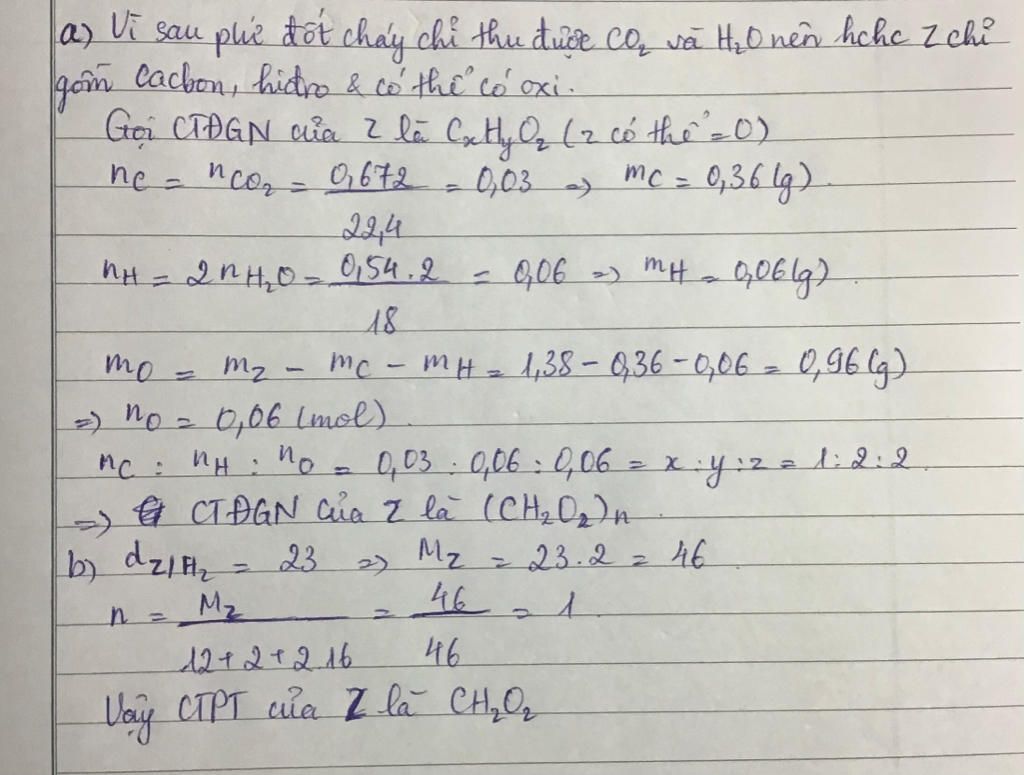 a) Vì sau pứ đốt cháy chỉ thu được CO₂ và H₂O nên hchc Z chỉ
gồm cacbon, hiđro & có thể có oxi.
Gọi CTĐGN của Z là CₓHᵧO_z (z có thể = 0)
nC = nCO₂ = 0,672 / 22,4 = 0,03 => mC = 0,36 (g)
nH = 2nH₂O = 0,54.2 / 18 = 0,06 => mH = 0,06 (g).
mO = mZ - mC - mH = 1,38 - 0,36 - 0,06 = 0,96 (g)
=> nO = 0,06 (mol).
nC : nH : nO = 0,03 : 0,06 : 0,06 = x : y : z = 1 : 2 : 2.
=> CTĐGN của Z là (CH₂O₂)n.
b) dZ/H₂ = 23 => MZ = 23.2 = 46
n = MZ / 12+2+2.16 = 46 / 46 = 1
Vậy CTPT của Z là CH₂O₂